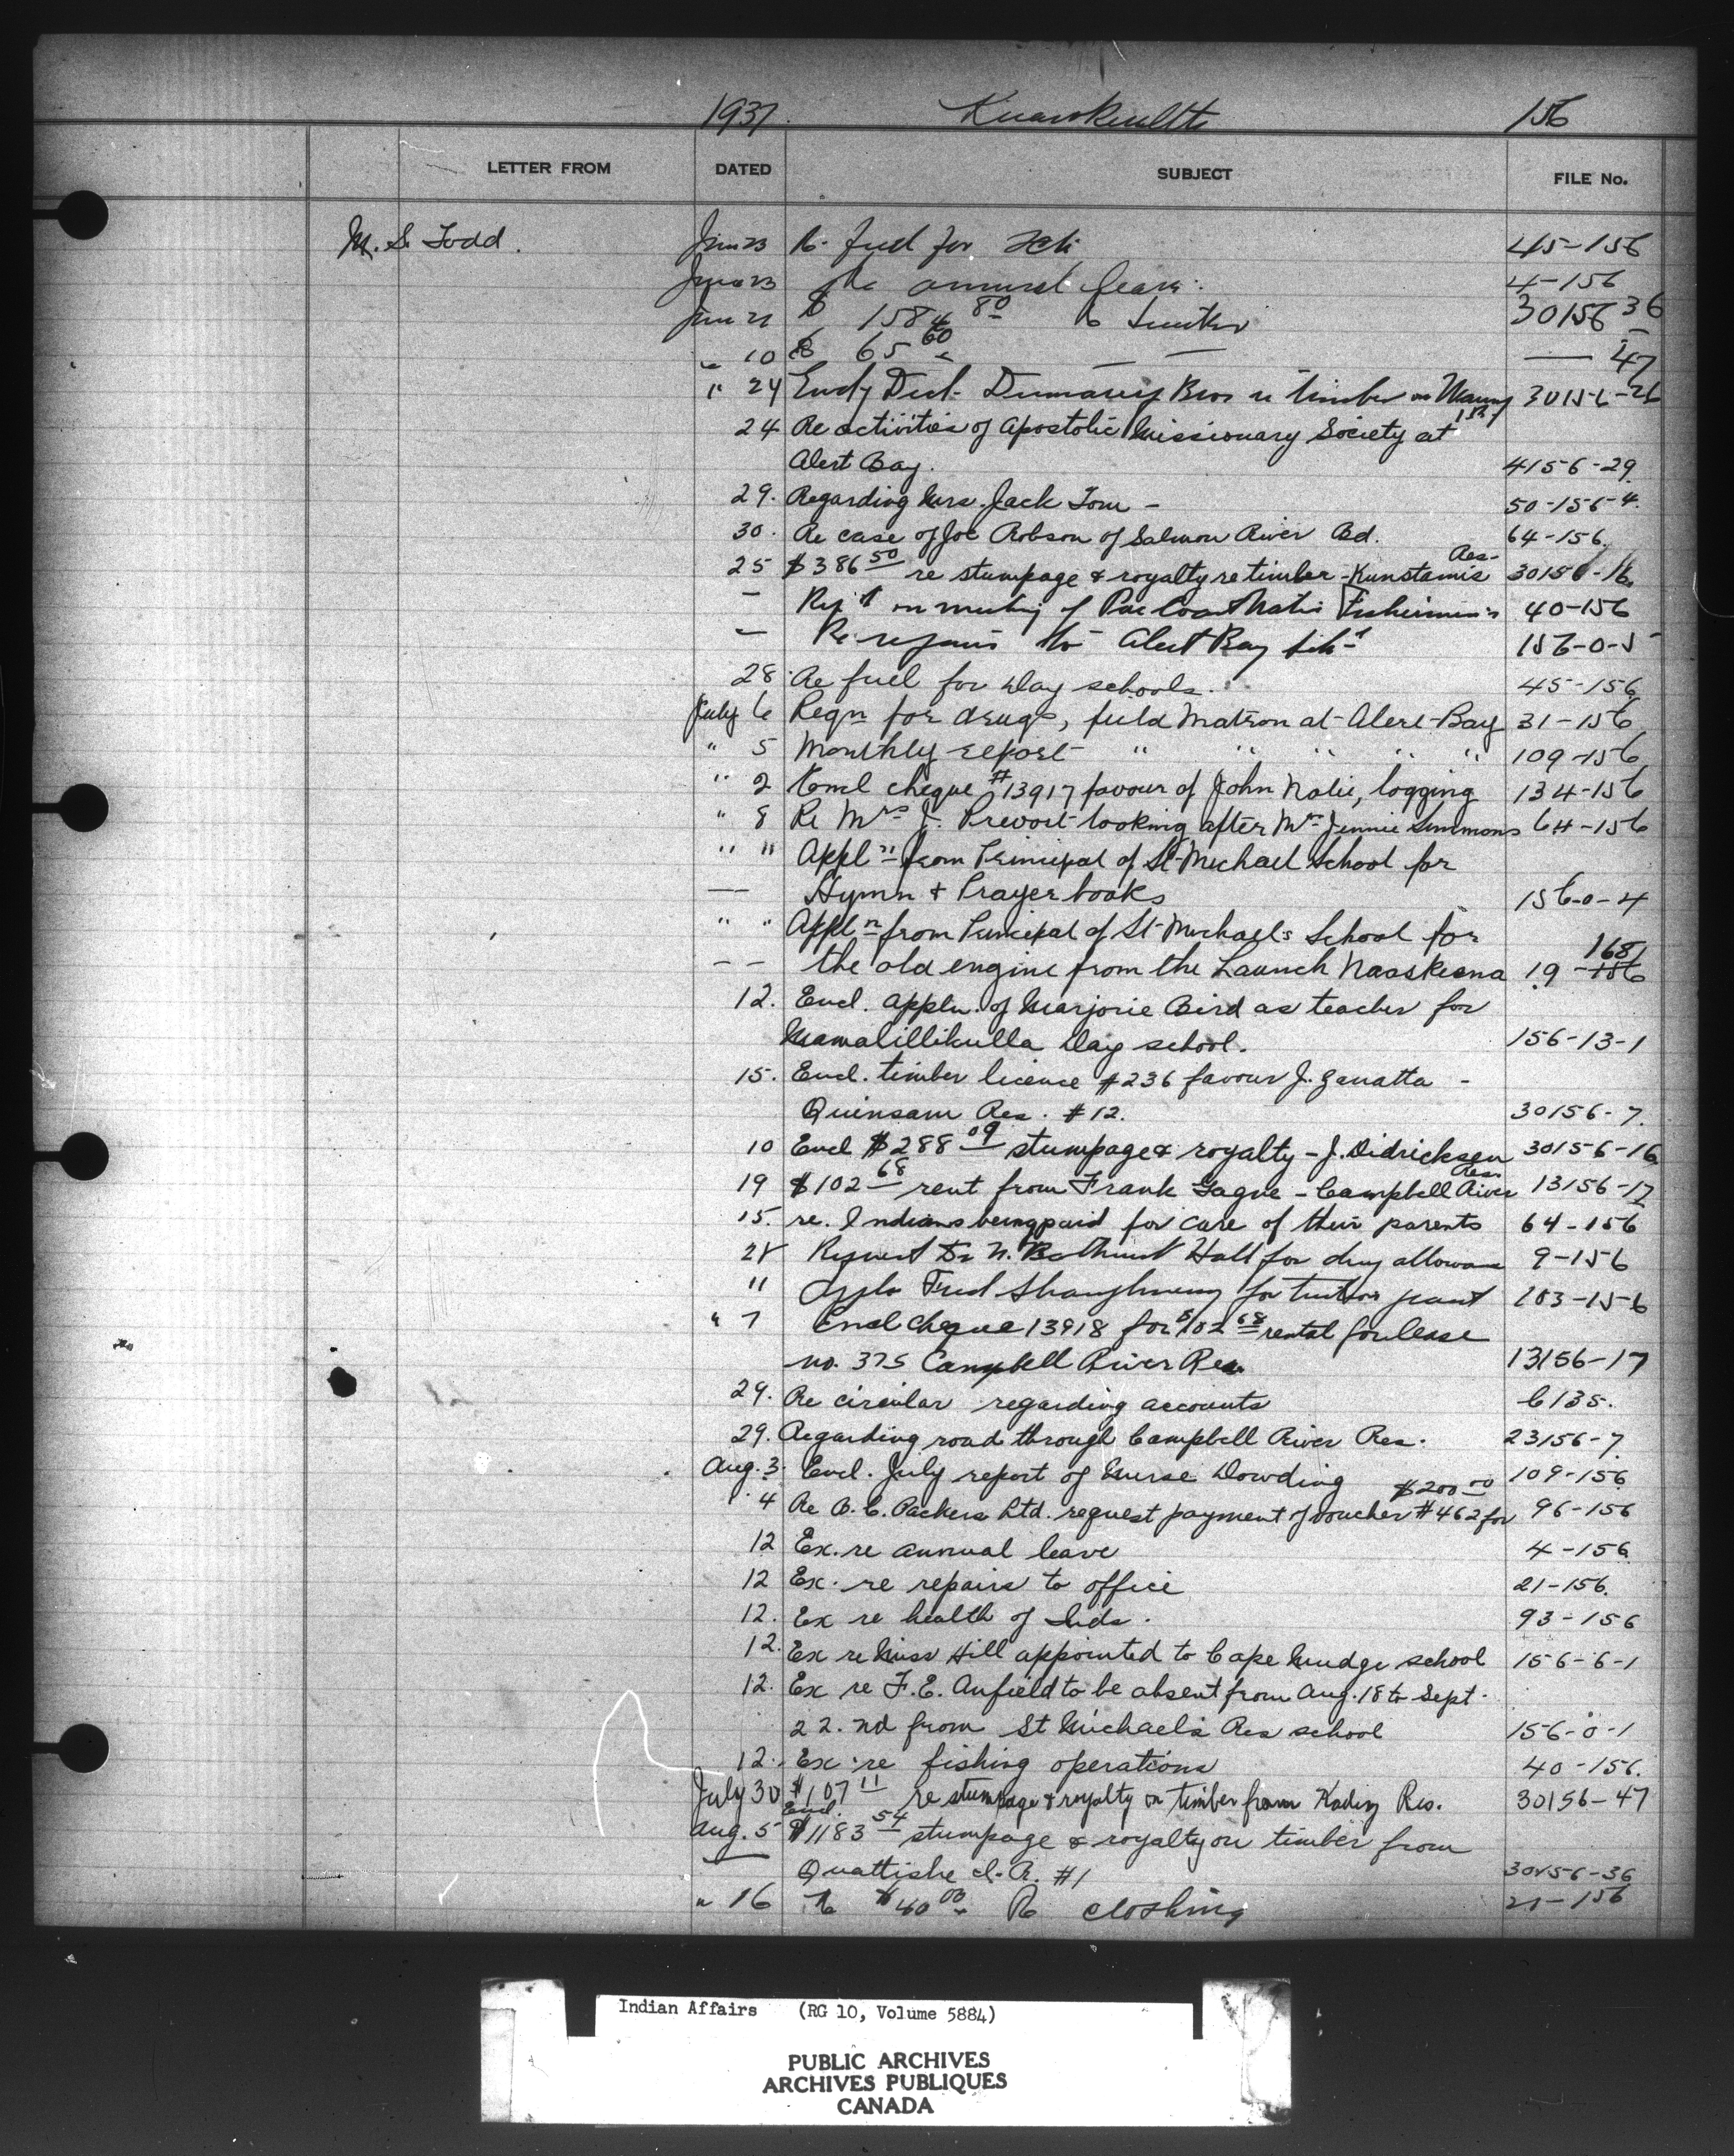 1937. 156
LETTER FROM DATED SUBJECT FILE No.
M. S. Todd. June 23 Re fuel for 45-156
June 23 Re annual leave. 4-156
June 21 $ 1584 80 Re timber 30156 36
" 10 $ 65 60 — — — 47
" 24 Bros re timber on 30156-26
24 Re activities of Apostolic Missionary Society at
Alert Bay. 4156-29.
29. Regarding Mrs. Jack Tom - 50-156-4.
30. Re case of Joe Robson of Salmon River Bd. 64-156.
25 $386 50 re stumpage & royalty re timber - Kunstamis Res- 30156-16.
— on meeting of Pac Coast Native Fishermen's 40-156
— Re repairs to Alert Bay 156-0-5
28. Re fuel for day schools. 45-156
July 6 Reqn for drugs, field Matron at Alert Bay 31-156
" 5 Monthly report " " " " " 109-156
" 2 Encl cheque #13917 favour of John Nolie, logging 134-156
" 8 Re Mrs J. Prevost looking after Mrs Jennie Simmons 64-156
" " Appln from Principal of St Michael School for
— — Hymn & Prayer books 156-0-4
" " Appln from Principal of St Michaels School for
— — the old engine from the Launch Naaskeena 19-156 168
12. Encl. appln. of Marjorie Bird as teacher for
Mamalillikulla day school. 156-13-1
15. Encl. timber licence #236 favour J. Zanatta -
Quinsam Res. #12. 30156-7.
10 Encl $288 09 stumpage & royalty - J. Didricksen 30156-16
19 $102 68 rent from Frank Gagne - Campbell River Resn 13156-17
15. re. Indians being paid for care of their parents 64-156
28 Request Dr N. Bathurst Hall for drug allowance 9-156
" Appln Fred Shaughnessy for tuition grant 103-156
" 7 Encl cheque 13918 for $102 68 rental for lease
no. 375 Campbell River Res. 13156-17
29. Re circular regarding accounts 6135.
29. Regarding road through Campbell River Res. 23156-7
Aug. 3. Encl. July report of Nurse Dowding 109-156
" 4 Re B.C. Packers Ltd. request payment of voucher #462 for $200 00 96-156
12 Ex. re annual leave 4-156
12 Ex. re repairs to office 21-156.
12. Ex re health of Inds. 93-156
12. Ex re Miss Hill appointed to Cape Mudge school 156-6-1
12. Ex re F.E. Anfield to be absent from Aug. 18 to Sept.
22.nd from St Michael's Res school 156-0-1
12. Ex re fishing operations 40-156.
July 30 $107 11 re stumpage & royalty on timber from Res. 30156-47
Aug. 5 Encl. $1183 54 stumpage & royalty on timber from
Quattishe I.R. #1 30156-36
" 16 Re $40 00 Re clothing 21-156
Indian Affairs (RG 10, Volume 5884)
PUBLIC ARCHIVES
ARCHIVES PUBLIQUES
CANADA